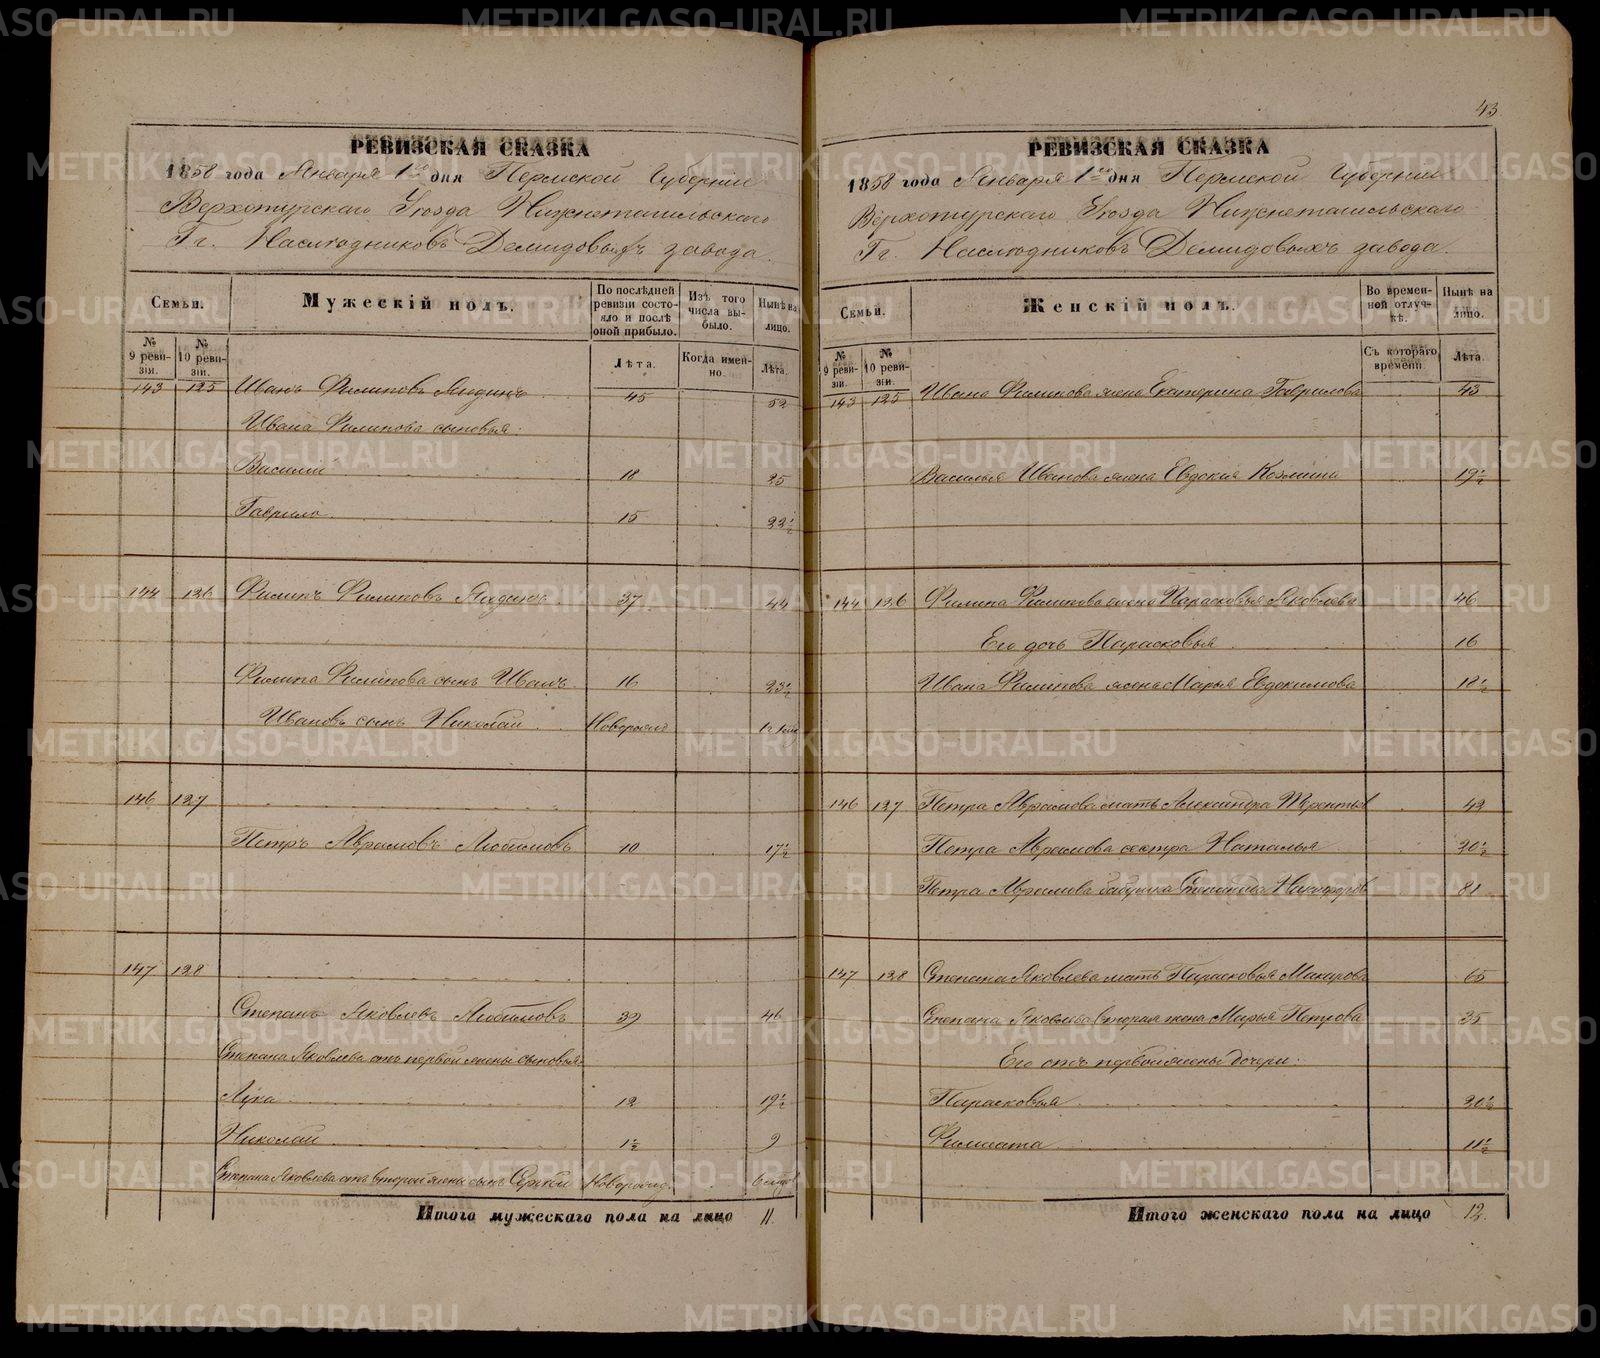 43
РЕВИЗСКАЯ СКАЗКА
1858 года Января 1го дня Пермской Губернии
Верхотурскаго Уезда Нижнетагильскаго
Гг. Наследниковъ Демидовыхъ завода.
Семьи.
№ 9 ревизіи.
№ 10 ревизіи.
Мужескій полъ.
По послѣдней ревизіи состояло и послѣ оной прибыло.
Лѣта.
Изъ того числа выбыло.
Когда именно.
Нынѣ на лицо.
Лѣта.
143 125 Иванъ Филиповъ 45 52
Ивана Филипова сыновья:
Василий 18 25
Гаврило 15 22½
144 126 Филипъ Филиповъ 37 44
Филипа Филипова сынъ Иванъ 16 23½
Ивановъ сынъ Николай Новорожд
146 127
Петръ Аврамовъ Любимовъ 10 17½
147 128
Степанъ Яковлевъ Любимовъ 39 46
Степана Яковлева отъ первой жены сыновья:
Лука 12 19½
Николай 1½ 9
Степана Яковлева отъ второй жены сынъ Сергей Новорожд. 6
Итого мужескаго пола на лицо 11.
РЕВИЗСКАЯ СКАЗКА
1858 года Января 1го дня Пермской Губернии
Верхотурскаго Уезда Нижнетагильскаго
Гг. Наследниковъ Демидовыхъ завода.
Семьи.
№ 9 ревизіи.
№ 10 ревизіи.
Женскій полъ.
Во временной отлучкѣ.
Съ котораго времени.
Нынѣ на лицо.
Лѣта.
143 125 Ивана Филипова жена Екатерина Гаврилова 43
Василья Иванова жена Евдокия Козмина 19½
144 126 Филипа Филипова жена Парасковья Яковлева 46
Его дочь Парасковья 16
Ивана Филипова жена Марья Евдокимова 18½
146 127 Петра Аврамова мать Александра 42
Петра Аврамова сестра Наталья 20½
Петра Аврамова бабушка Степанида Никифоров 81
147 128 Степана Яковлева мать Парасковья Макаровъ 65
Степана Яковлева вторая жена Марья Петрова 35
Его отъ первой жены дочери:
Парасковья 20½
11½
Итого женскаго пола на лицо 12.
METRIKI.GASO-URAL.RU